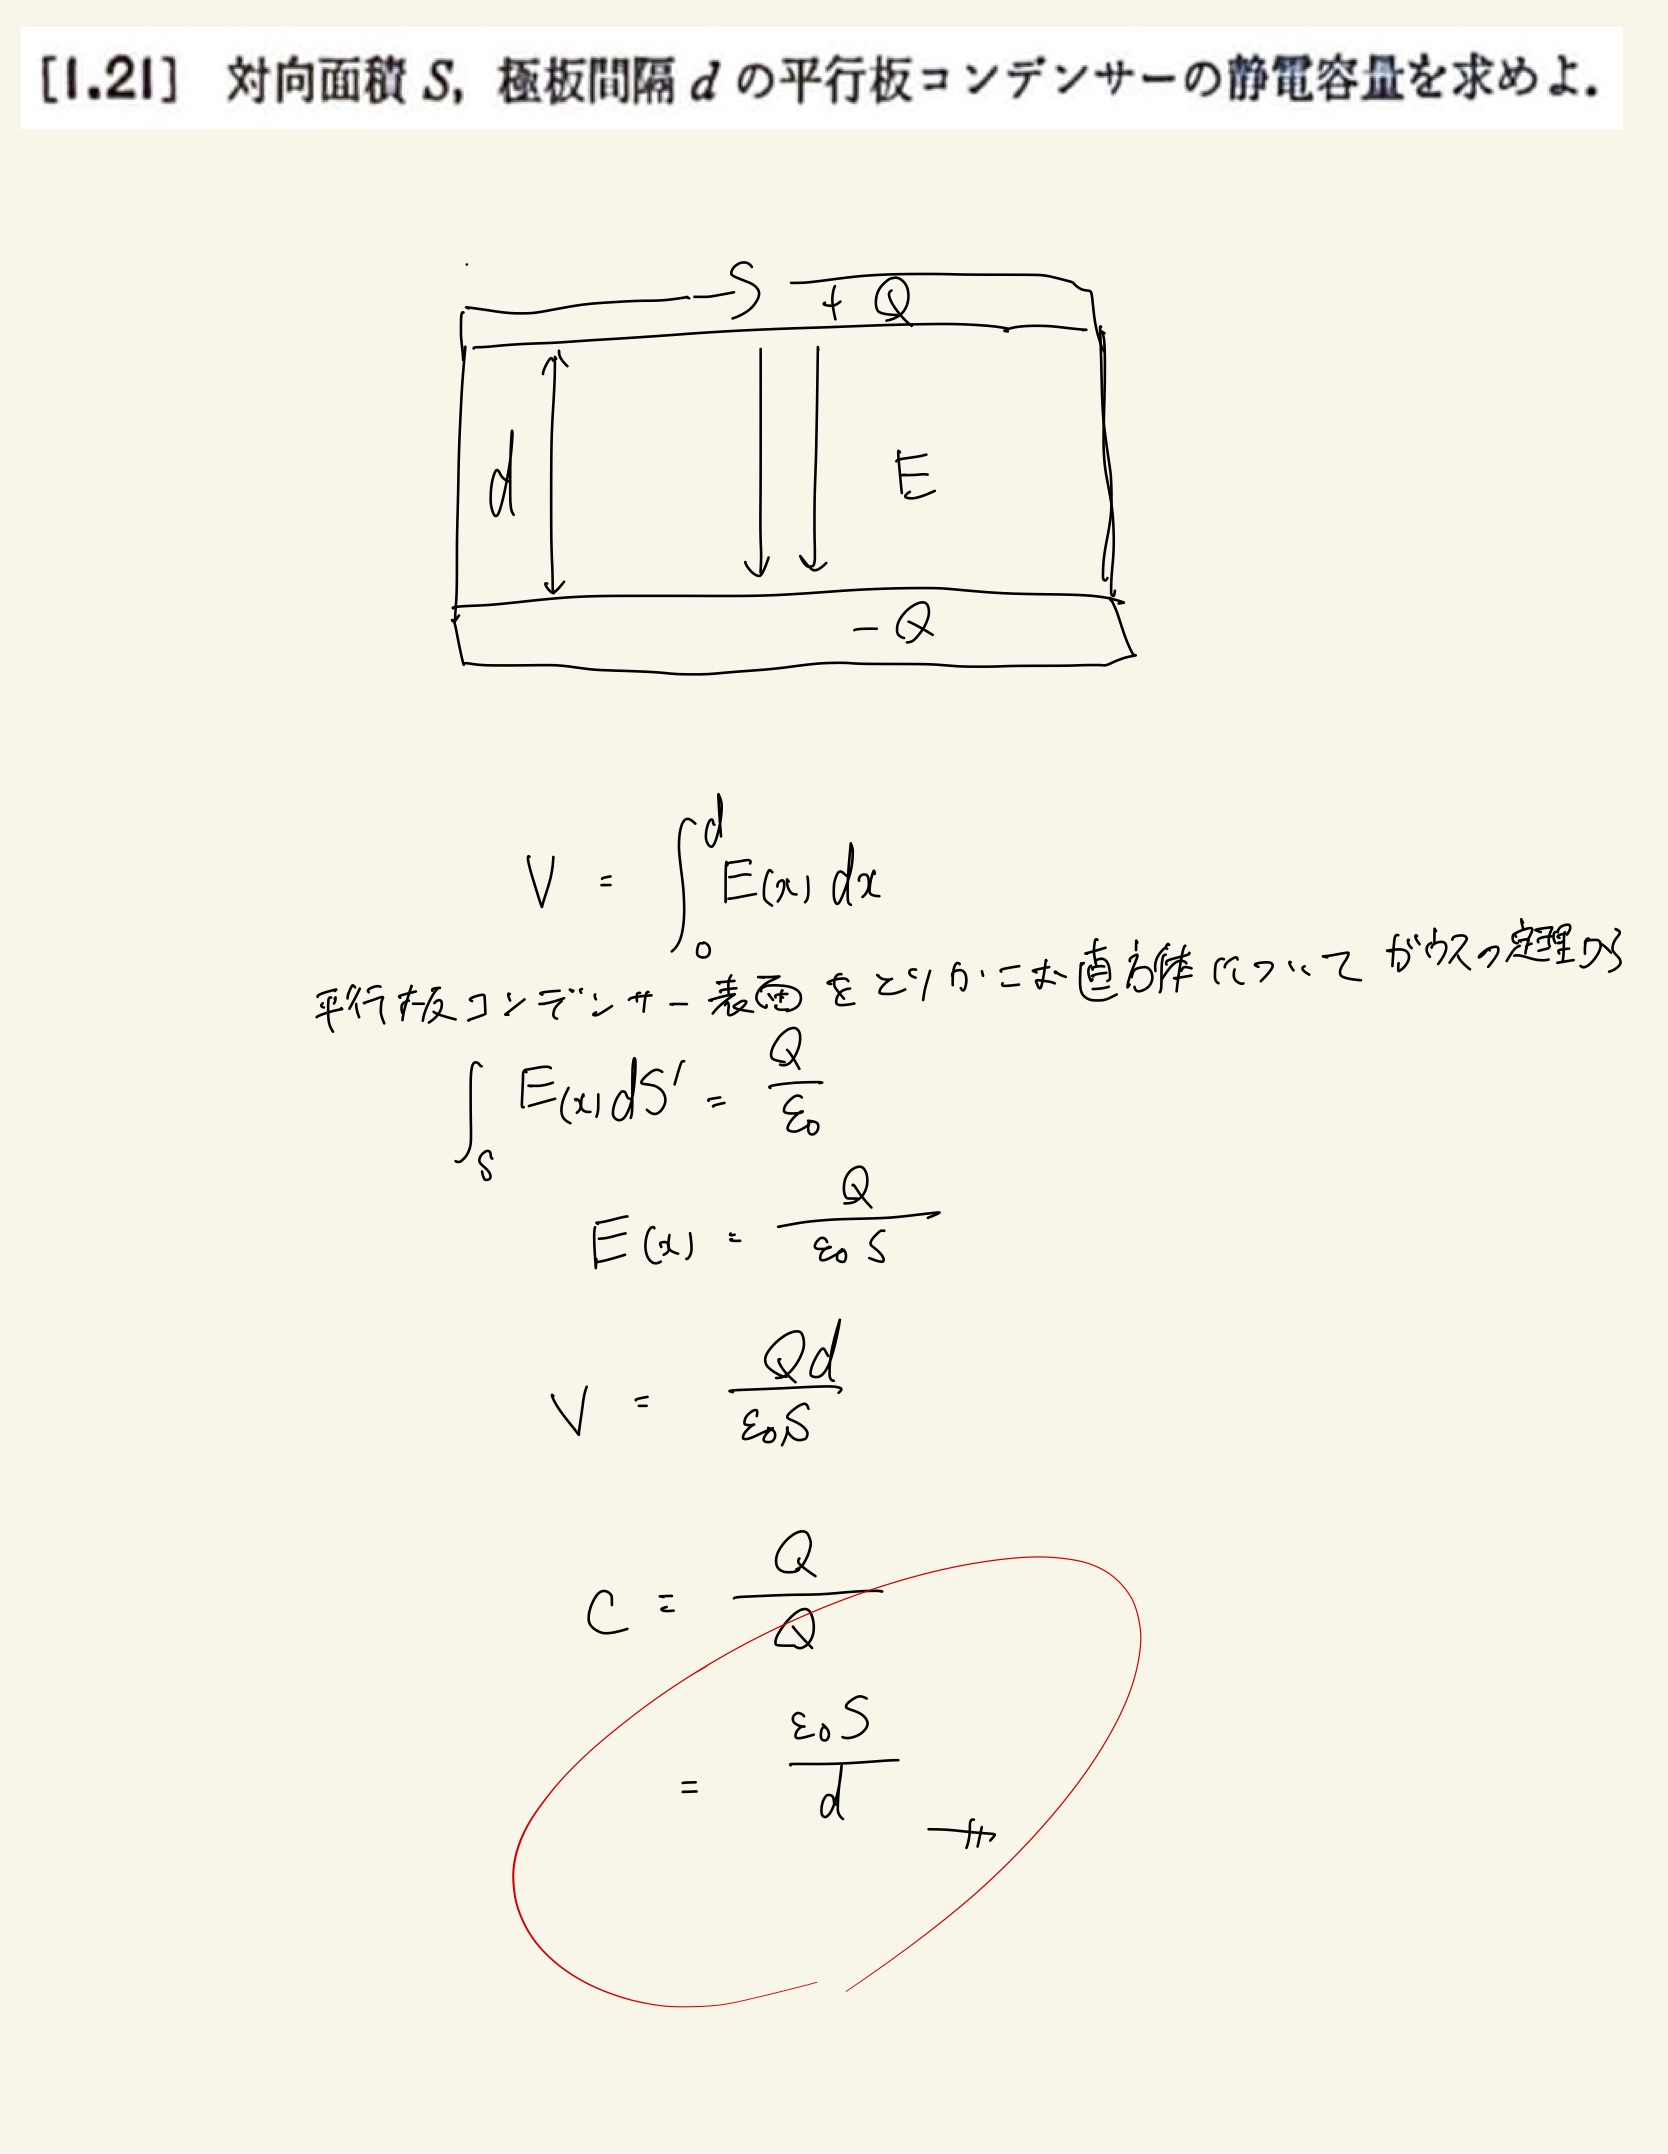 [1.21] 対向面積 S, 極板間隔 d の平行板コンデンサーの静電容量を求めよ.
S + Q
d
E
- Q
V = ∫₀ᵈ E(x) dx
平行板コンデンサー表面をとりかこむ直方体について ガウスの定理から
∫_S E(x) dS' = Q/ε₀
E(x) = Q/ε₀S
V = Qd/ε₀S
C = Q/Q
= ε₀S/d